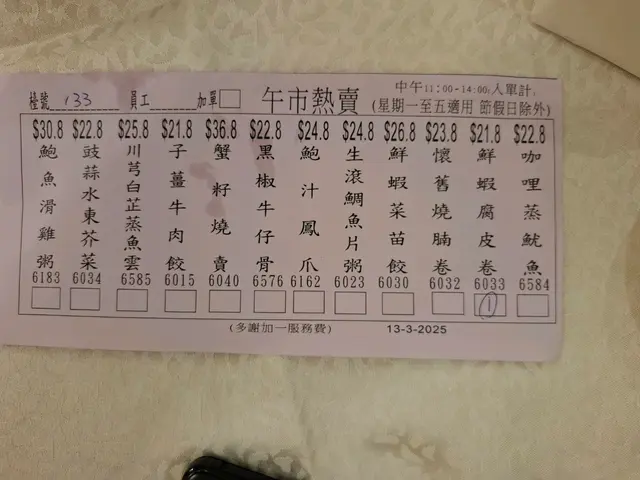 檯號 133 員工 加單 午市熱賣 中午11:00-14:00:入單計:
(星期一至五適用 節假日除外)
$30.8 $22.8 $25.8 $21.8 $36.8 $22.8 $24.8 $24.8 $26.8 $23.8 $21.8 $22.8
鮑魚滑雞粥
豉蒜水東芥菜
川芎白芷蒸魚雲
子薑牛肉餃
蟹籽燒賣
黑椒牛仔骨
鮑汁鳳爪
生滾鯛魚片粥
鮮蝦菜苗餃
懷舊燒腩卷
鮮蝦腐皮卷
咖哩蒸魷魚
6183 6034 6585 6015 6040 6576 6162 6023 6030 6032 6033 6584
1
(多謝加一服務費) 13-3-2025